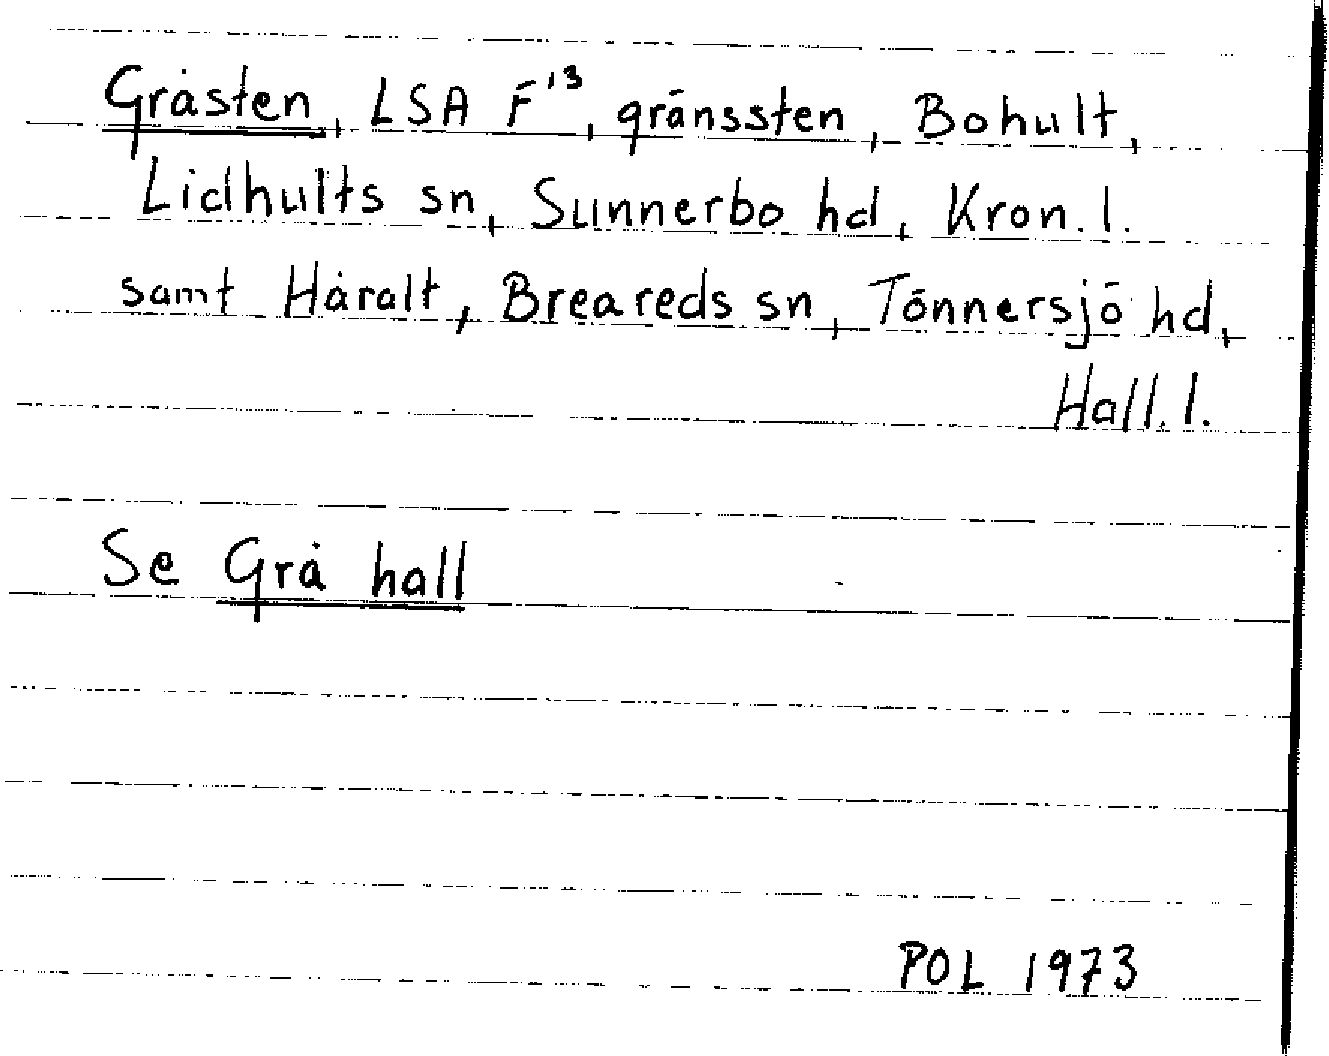 Gråsten, LSA F¹³, gränssten, Bohult,
Lidhults sn, Sunnerbo hd, Kron. l.
samt Håralt, Breareds sn, Tönnersjö hd,
Hall. l.
Se Grå hall
POL 1973